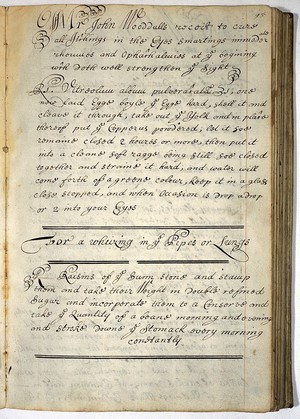 Mr John Wooddalls receit to cure
all Itchings in the Eyes smartings immoder
rhoumes and Ophthalmies at yͤ begining
wch doth well strengthen yͤ Sight
one
new laid Egge boyle yͤ Egge hard, shell it and
cleave it through, take out yͤ Yolk and in place
thereof put yͤ Copperus powdered, let it soe
remaine closed 2 houres or more, then put it
into a cleane soft ragge being still soe closed
together and straine it hard, and water will
come forth of a greene colour, keep it in a glass
close stopped, and when Occasion is drop a drop
or 2 into your Eyes
For a whezing in yͤ Pipes or Lungs
Raisins of yͤ Sunn stone and stamp
them and take their Weight in Double refined
Sugar and incorporate them to a Conserve and
take yͤ Quantity of a beane morning and evening
and stroke Downe yͤ Stomack every morning
constantly